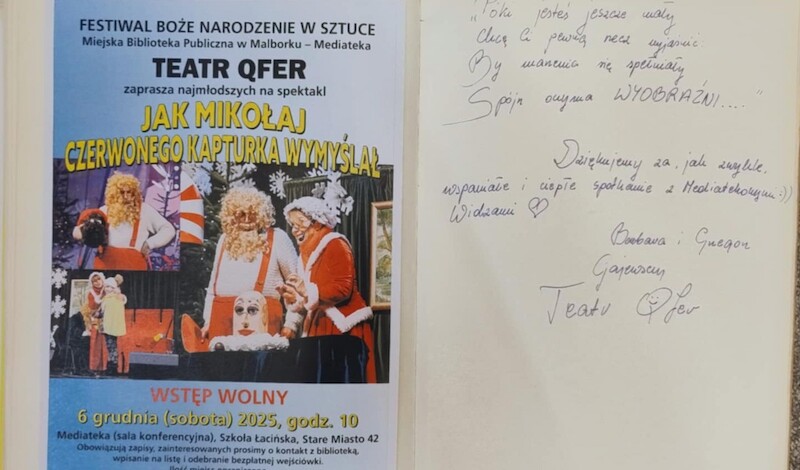 FESTIWAL BOŻE NARODZENIE W SZTUCE
Miejska Biblioteka Publiczna w Malborku – Mediateka
TEATR QFER
zaprasza najmłodszych na spektakl
JAK MIKOŁAJ
CZERWONEGO KAPTURKA WYMYŚLAŁ
WSTĘP WOLNY
6 grudnia (sobota) 2025, godz. 10
Mediateka (sala konferencyjna), Szkoła Łacińska, Stare Miasto 42
Obowiązują zapisy, zainteresowanych prosimy o kontakt z biblioteką,
wpisanie na listę i odebranie bezpłatnej wejściówki.
"Póki jesteś jeszcze mały
Chcę Ci pewną rzecz wyjaśnić
By marzenia się spełniały
Spójrz oczyma WYOBRAŹNI...."
Dziękujemy za, jak zwykle,
wspaniałe i ciepłe spotkanie z Mediatekowymi :))
Widzami ♡
Barbara i
Gajewscy
Teatr Qfer